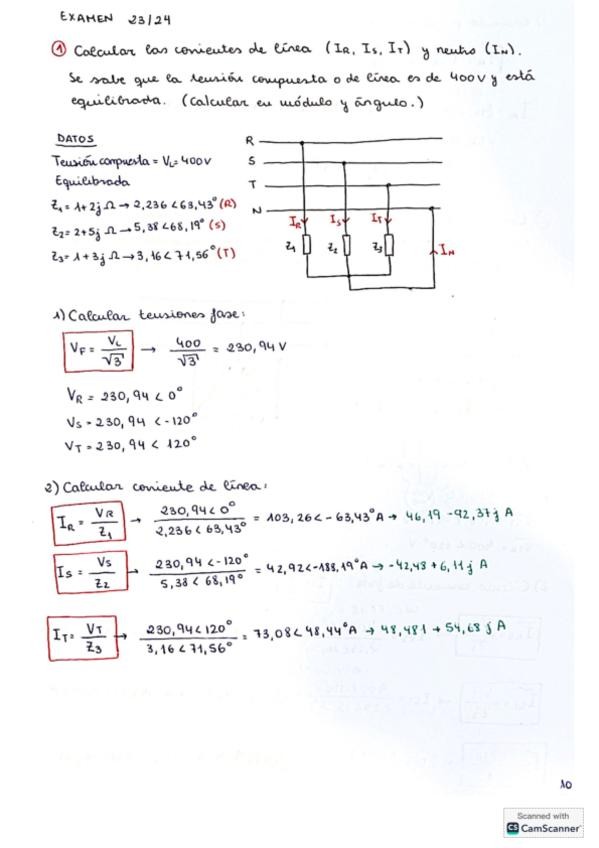 EXAMEN 23/24
① Calcular las corrientes de línea (IR, IS, IT) y neutro (IN).
Se sabe que la tensión compuesta o de línea es de 400 V y está
equilibrada. (Calcular en módulo y ángulo.)
DATOS
Tensión compuesta = VL = 400 V
Equilibrada
Z1 = 1+2j Ω → 2,236 < 63,43° (R)
Z2 = 2+5j Ω → 5,38 < 68,19° (S)
Z3 = 1+3j Ω → 3,16 < 71,56° (T)
R
S
T
N
IR IS IT
Z1 Z2 Z3 IN
1) Calcular tensiones fase:
VF = VL/√3 → 400/√3 = 230,94 V
VR = 230,94 < 0°
VS = 230,94 < -120°
VT = 230,94 < 120°
2) Calcular corriente de línea:
IR = VR/Z1 → 230,94 < 0° / 2,236 < 63,43° = 103,26 < -63,43° A → 46,19 - 92,37j A
IS = VS/Z2 → 230,94 < -120° / 5,38 < 68,19° = 42,92 < -188,19° A → -42,48 + 6,11j A
IT = VT/Z3 → 230,94 < 120° / 3,16 < 71,56° = 73,08 < 48,44° A → 48,481 + 54,68j A
10
Scanned with
CS CamScanner